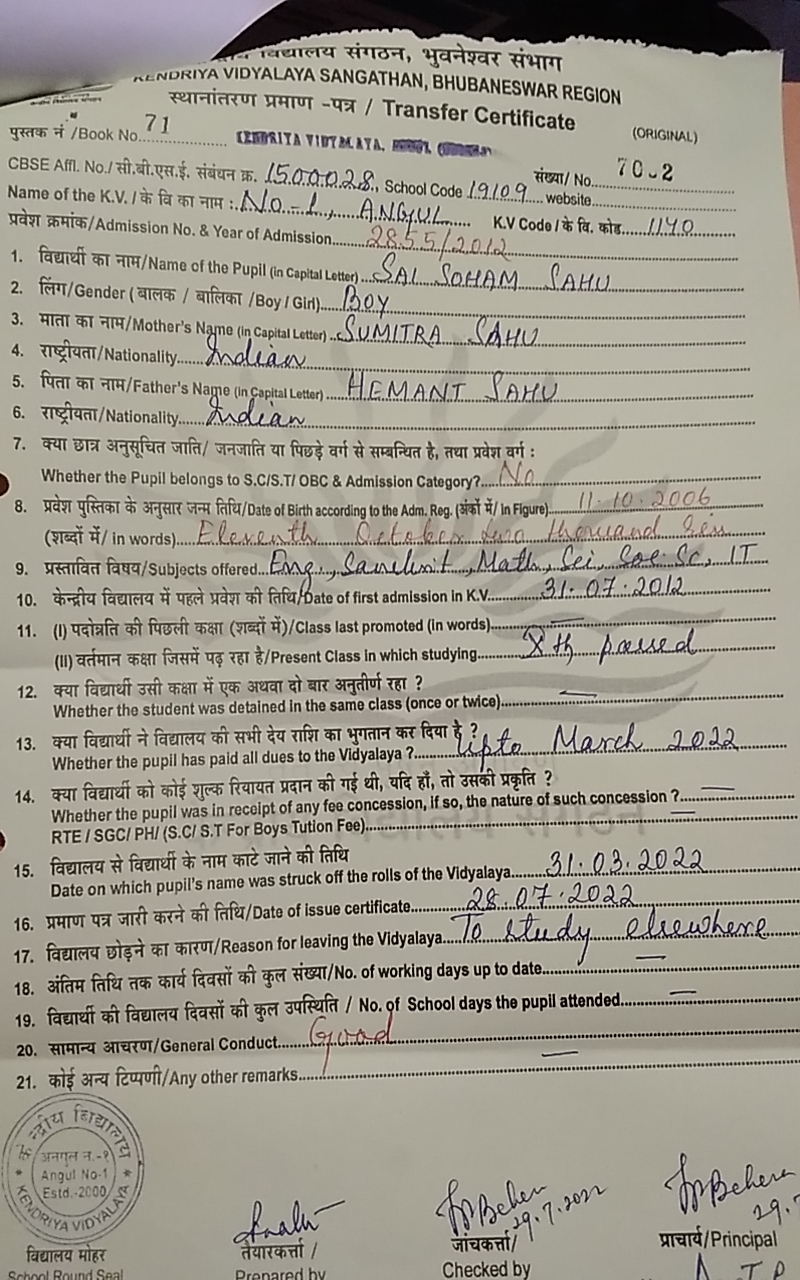 विद्यालय संगठन, भुवनेश्वर संभाग
KENDRIYA VIDYALAYA SANGATHAN, BHUBANESWAR REGION
स्थानांतरण प्रमाण -पत्र / Transfer Certificate
(ORIGINAL)
पुस्तक नं /Book No. 71 KENDRIYA VIDYALAYA,
CBSE Affl. No./ सी.बी.एस.ई. संबंधन क्र. 1500028, School Code 19109 संख्या/ No. website
Name of the K.V. / के वि का नाम : No-1, ANGUL K.V Code / के वि. कोड 1140
प्रवेश क्रमांक/Admission No. & Year of Admission 2855/2012
1. विद्यार्थी का नाम/Name of the Pupil (in Capital Letter) SAI SOHAM SAHU
2. लिंग/Gender ( बालक / बालिका /Boy / Girl) BOY
3. माता का नाम/Mother's Name (in Capital Letter) SUMITRA SAHU
4. राष्ट्रीयता/Nationality Indian
5. पिता का नाम/Father's Name (in Capital Letter) HEMANT SAHU
6. राष्ट्रीयता/Nationality Indian
7. क्या छात्र अनुसूचित जाति/ जनजाति या पिछड़े वर्ग से सम्बन्धित है, तथा प्रवेश वर्ग :
Whether the Pupil belongs to S.C/S.T/ OBC & Admission Category? No
8. प्रवेश पुस्तिका के अनुसार जन्म तिथि/Date of Birth according to the Adm. Reg. (अंकों में/ in Figure) 11.10.2006
(शब्दों में/ in words) Eleventh October two thousand Six
9. प्रस्तावित विषय/Subjects offered Eng., Sanskrit, Math, Sci, Soc. Sc, IT
10. केन्द्रीय विद्यालय में पहले प्रवेश की तिथि/Date of first admission in K.V. 31.07.2012
11. (I) पदोन्नति की पिछली कक्षा (शब्दों में)/Class last promoted (in words) —
(II) वर्तमान कक्षा जिसमें पढ़ रहा है/Present Class in which studying Xth passed
12. क्या विद्यार्थी उसी कक्षा में एक अथवा दो बार अनुतीर्ण रहा ?
Whether the student was detained in the same class (once or twice) —
13. क्या विद्यार्थी ने विद्यालय की सभी देय राशि का भुगतान कर दिया है ?
Whether the pupil has paid all dues to the Vidyalaya ? Upto March 2022
14. क्या विद्यार्थी को कोई शुल्क रियायत प्रदान की गई थी, यदि हाँ, तो उसकी प्रकृति ?
Whether the pupil was in receipt of any fee concession, if so, the nature of such concession ? —
RTE / SGC/ PH/ (S.C/ S.T For Boys Tution Fee) —
15. विद्यालय से विद्यार्थी के नाम काटे जाने की तिथि
Date on which pupil's name was struck off the rolls of the Vidyalaya 31.03.2022
16. प्रमाण पत्र जारी करने की तिथि/Date of issue certificate 28.07.2022
17. विद्यालय छोड़ने का कारण/Reason for leaving the Vidyalaya To study elsewhere
18. अंतिम तिथि तक कार्य दिवसों की कुल संख्या/No. of working days up to date —
19. विद्यार्थी की विद्यालय दिवसों की कुल उपस्थिति / No. of School days the pupil attended —
20. सामान्य आचरण/General Conduct Good
21. कोई अन्य टिप्पणी/Any other remarks —
केन्द्रीय विद्यालय
अनगुल न.-१
Angul No-1
Estd.-2000
KENDRIYA VIDYALAYA
29.7.2022
29.7
विद्यालय मोहर तैयारकर्त्ता / जांचकर्त्ता/ प्राचार्य/Principal
School Round Seal Prepared by Checked by